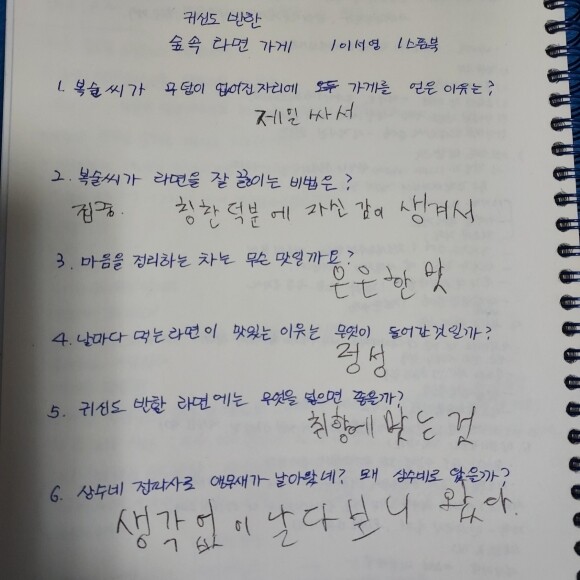 귀신도 반한
숲속 라면 가게 / 이서영 / 크레용북
1. 복술씨가 무덤이 없어진자리에 가게를 얻은 이유는?
제일 싸서
2. 복술씨가 라면을 잘 끓이는 비법은?
집중. 칭찬덕분에 자신감이 생겨서
3. 마음을 정리하는 차는 무슨 맛일까요?
은은한 맛
4. 날마다 먹는라면이 맛있는 이유는 무엇이 들어간것일까?
정성
5. 귀신도 반할 라면에는 무엇을 넣으면 좋을까?
취향에 맞는 것
6. 상수네 잡화사로 앵무새가 날아왔네? 왜 상수네로 왔을까?
생각없이 날다보니 왔다.